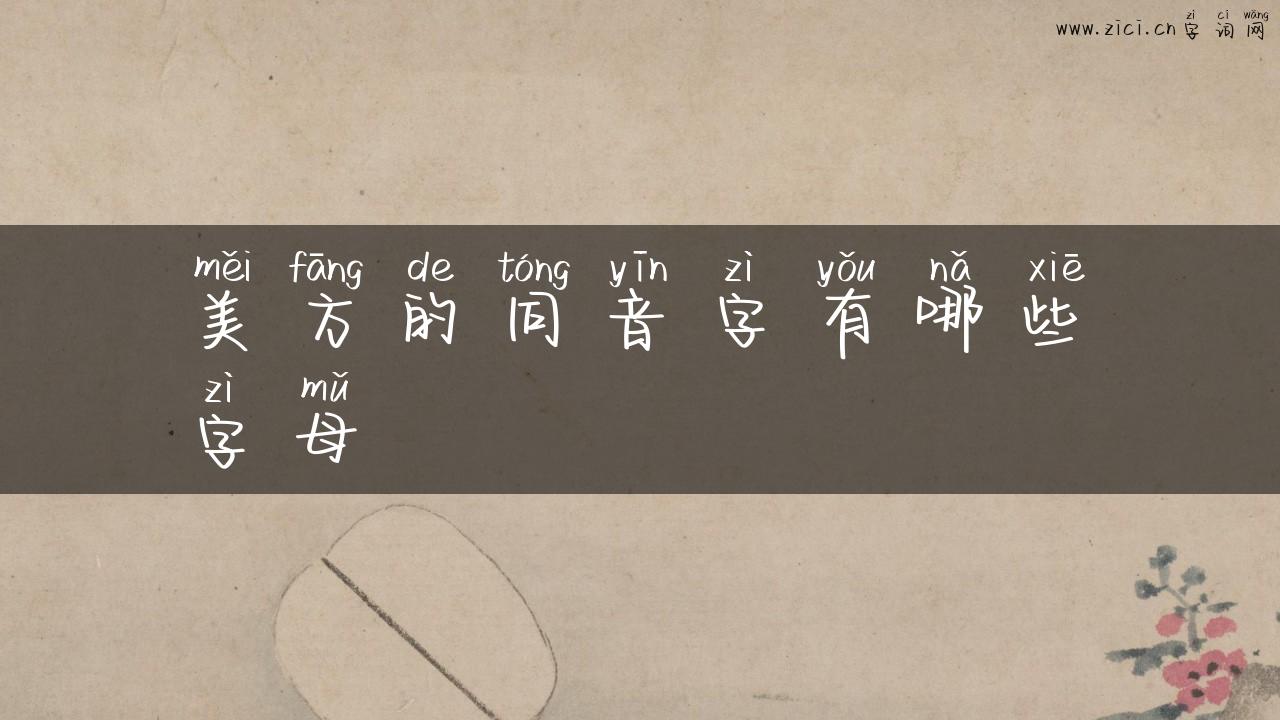 zì cí wǎng
www.zici.cn 字词网
měi fāng de tóng yīn zì yǒu nǎ xiē
美方的同音字有哪些
zì mǔ
字母